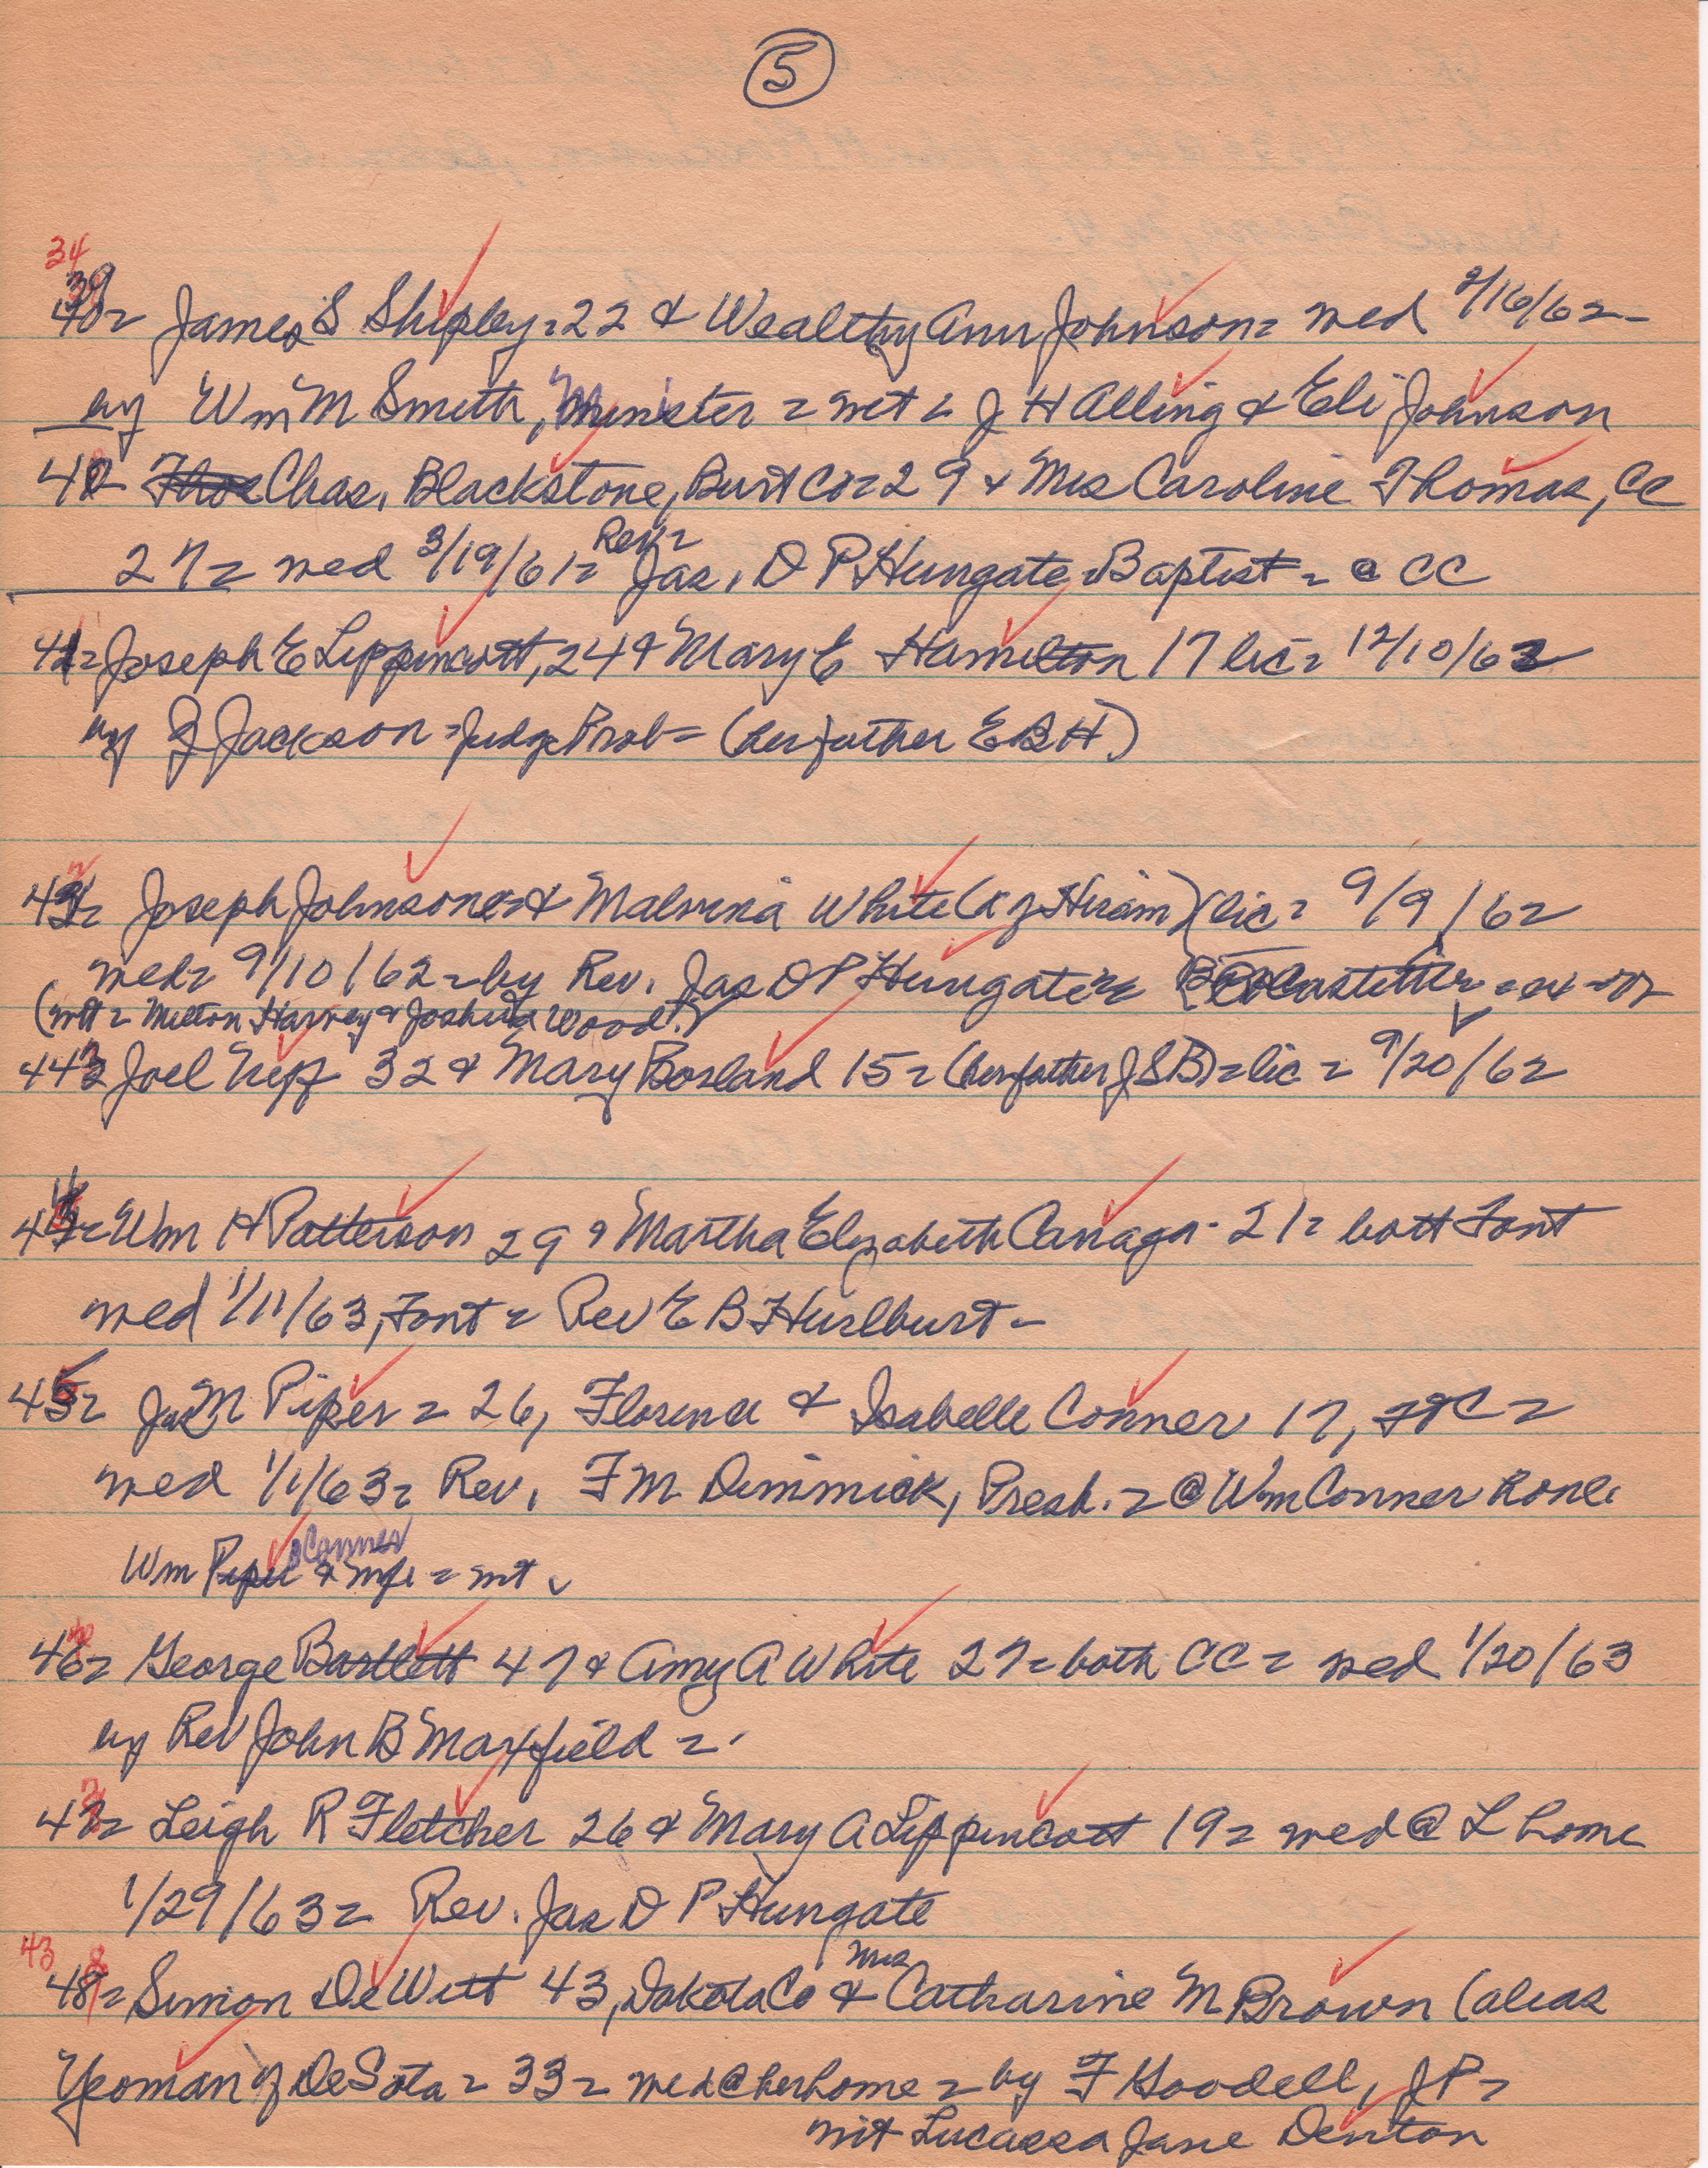 5
34
39
40= James S Shipley=22 & Wealthy Ann Johnson= med 2/16/62-
by Wm M Smith, Minister = wit = J H Alling & Eli Johnson
40= Thos Chas. Blackstone, Burt Co=29 & Mrs Caroline Thomas, CC
27= med 3/19/61= Rev= Jas. D P Hungate=Baptist= @ CC
41= Joseph E Lippincott, 24 & Mary E Hamilton 17 lic= 12/10/62
by J Jackson=Judge Prob= (her father E B H)
42= Joseph Johnson & Malvina White (d of Hiram) (lic= 9/9/62
med= 9/10/62=by Rev. Jas D P Hungate
(wit= Milton Harvey & Joshua Wood)
443 Joel Neff 32 & Mary Borland 15= (her father J S B)=lic= 9/20/62
44= Wm H Patterson 29 & Martha Elizabeth Canaga- 21= both Font
med 1/11/63, Font= Rev E B Hurlburt-
45= Jas M Piper= 26, Florence & Isabelle Conner 17, Ft C=
med 1/1/63= Rev. F M Dimmick, Presb.= @ Wm Conner home
Wm Piper Conner & wife = wit
46= George Bartlett 47 & Amy A White 27=both CC= med 1/20/63
by Rev John B Maxfield =
47= Leigh R Fletcher 26 & Mary A Lippincott 19= med @ L home
1/29/63= Rev. Jas D P Hungate
43
48= Simon DeWitt 43, Dakota Co & Mrs Catharine M Brown (alias
Yeoman of DeSota= 33= med @ her home= by F Goodell, JP=
wit Lucassa Jane Denton